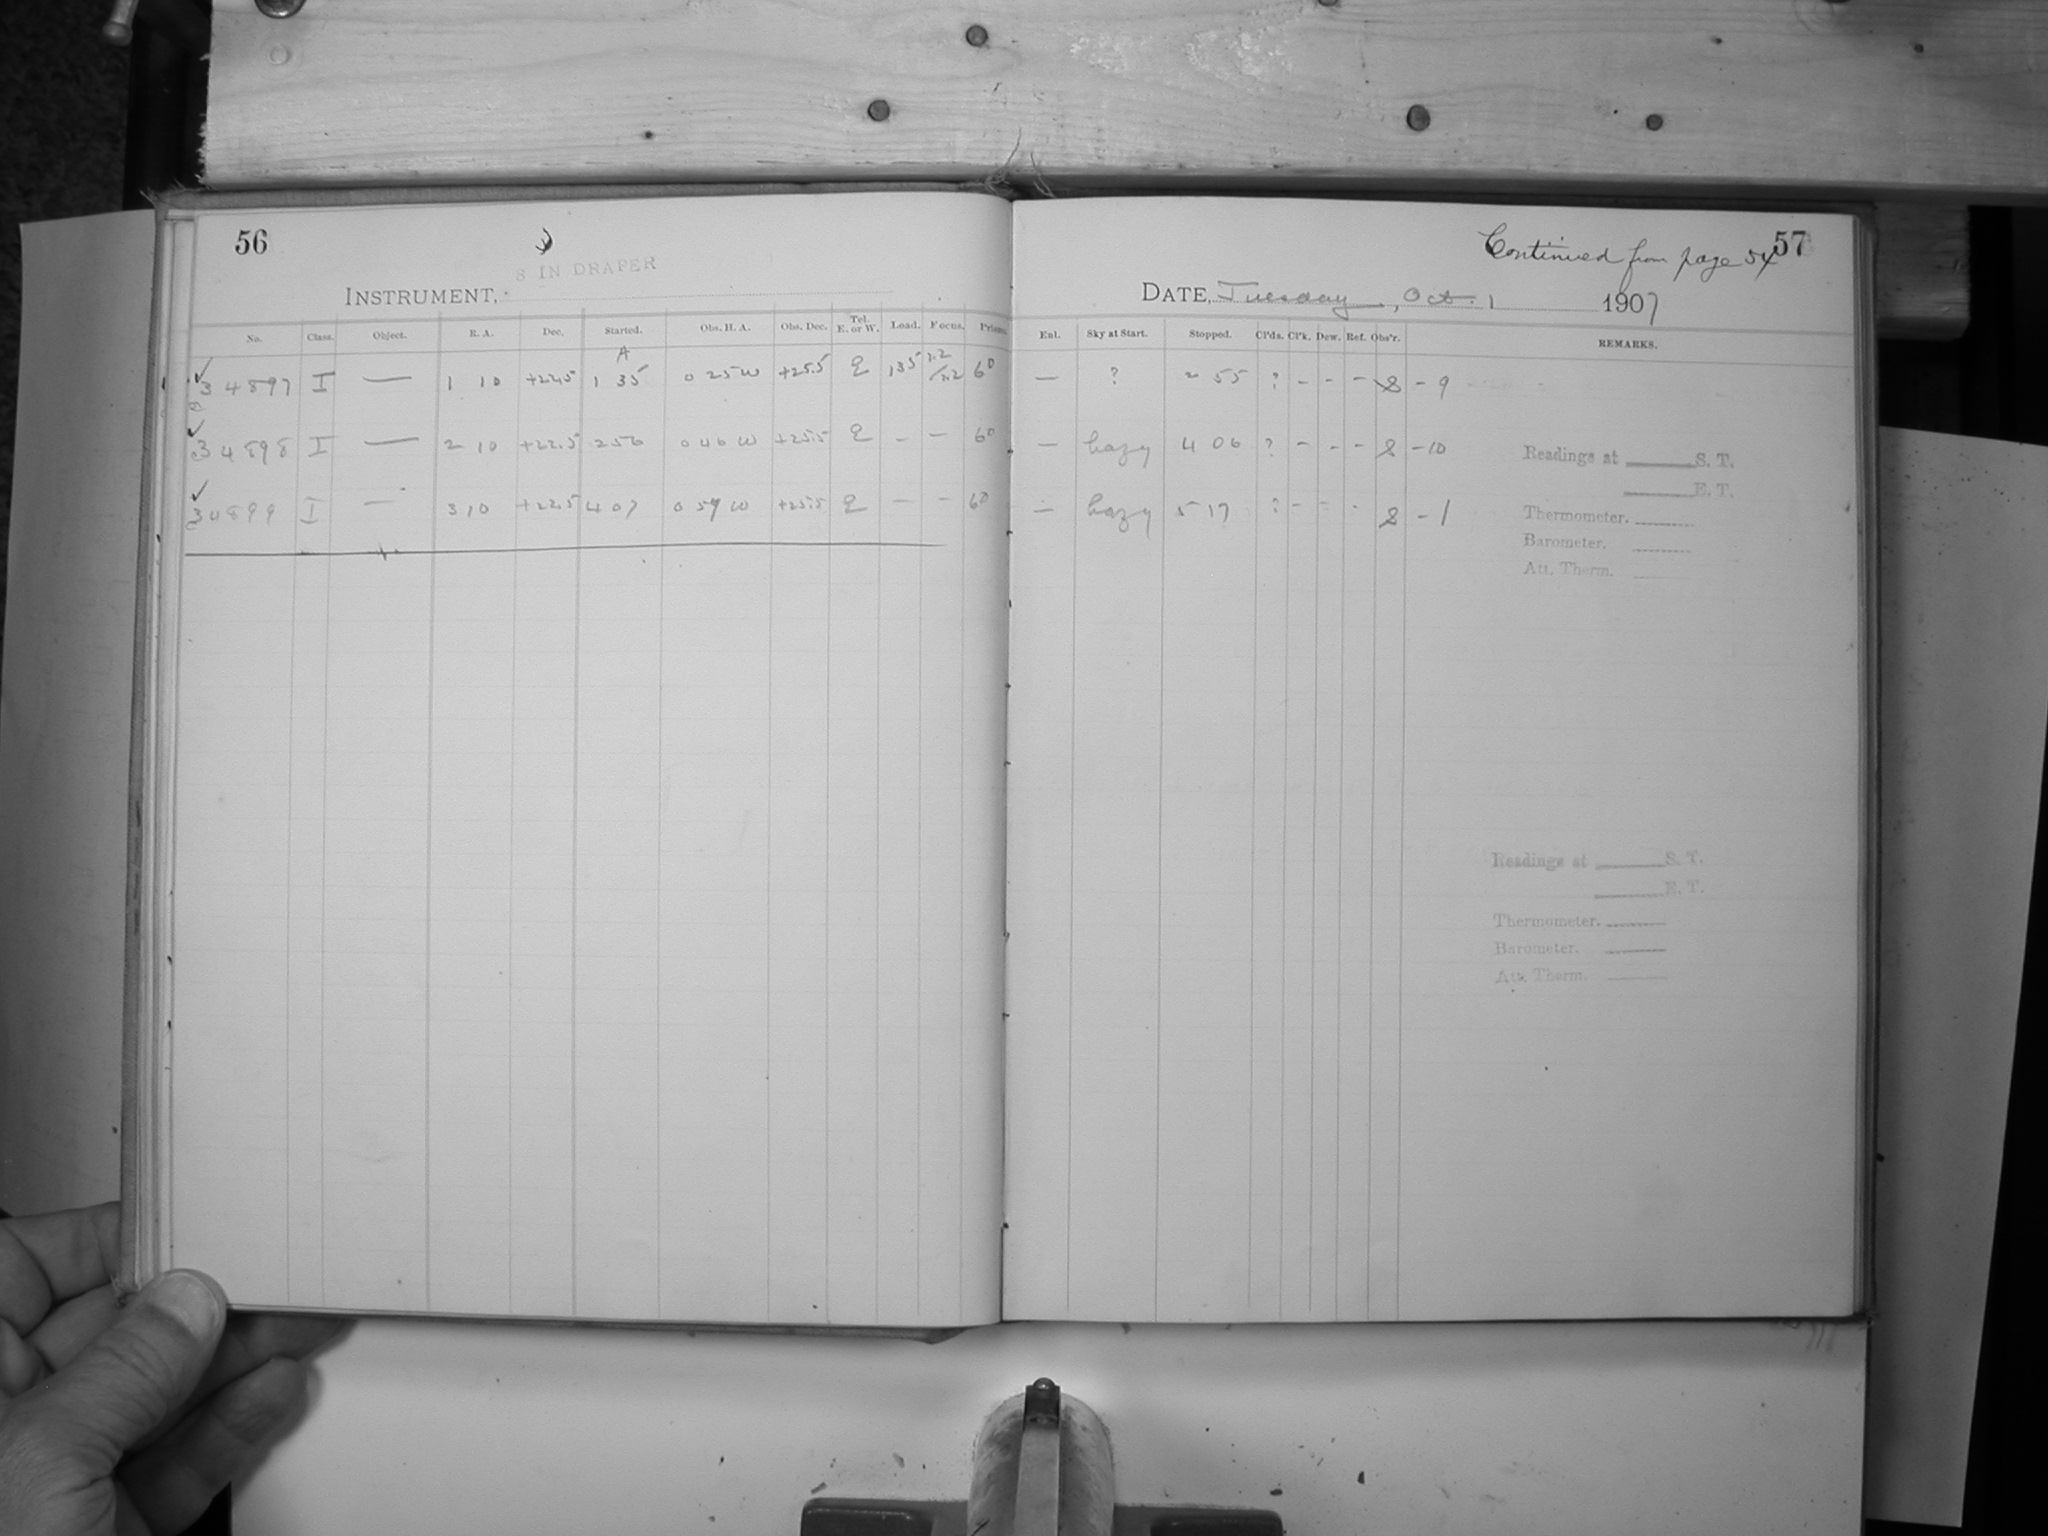 56
8 IN DRAPER
INSTRUMENT,
No. Class. Object. R. A. Dec. Started. Obs. H. A. Obs. Dec. Tel. E. or W. Lead. Focus. Prism.
A
34897 I — 1 10 +22.5 1 35 0 25 W +25.5 E 135 60
34898 I — 2 10 +22.5 2 56 0 46 W +25.5 E - - 60
34899 I — 3 10 +22.5 4 07 0 57 W +25.5 E - - 60
Continued from page 54
57
DATE, Tuesday, Oct. 1 1907
Enl. Sky at Start. Stopped. Cl'ds. Cl'k. Dew. Ref. Obs'r. REMARKS.
— ? 2 55 ? - - - 8 - 9
— hazy 4 06 ? - - - 8 - 10
— hazy 5 17 ? - - - 8 - 1
Readings at S. T.
E. T.
Thermometer.
Barometer.
Att. Therm.
Readings at S. T.
E. T.
Thermometer.
Barometer.
Att. Therm.